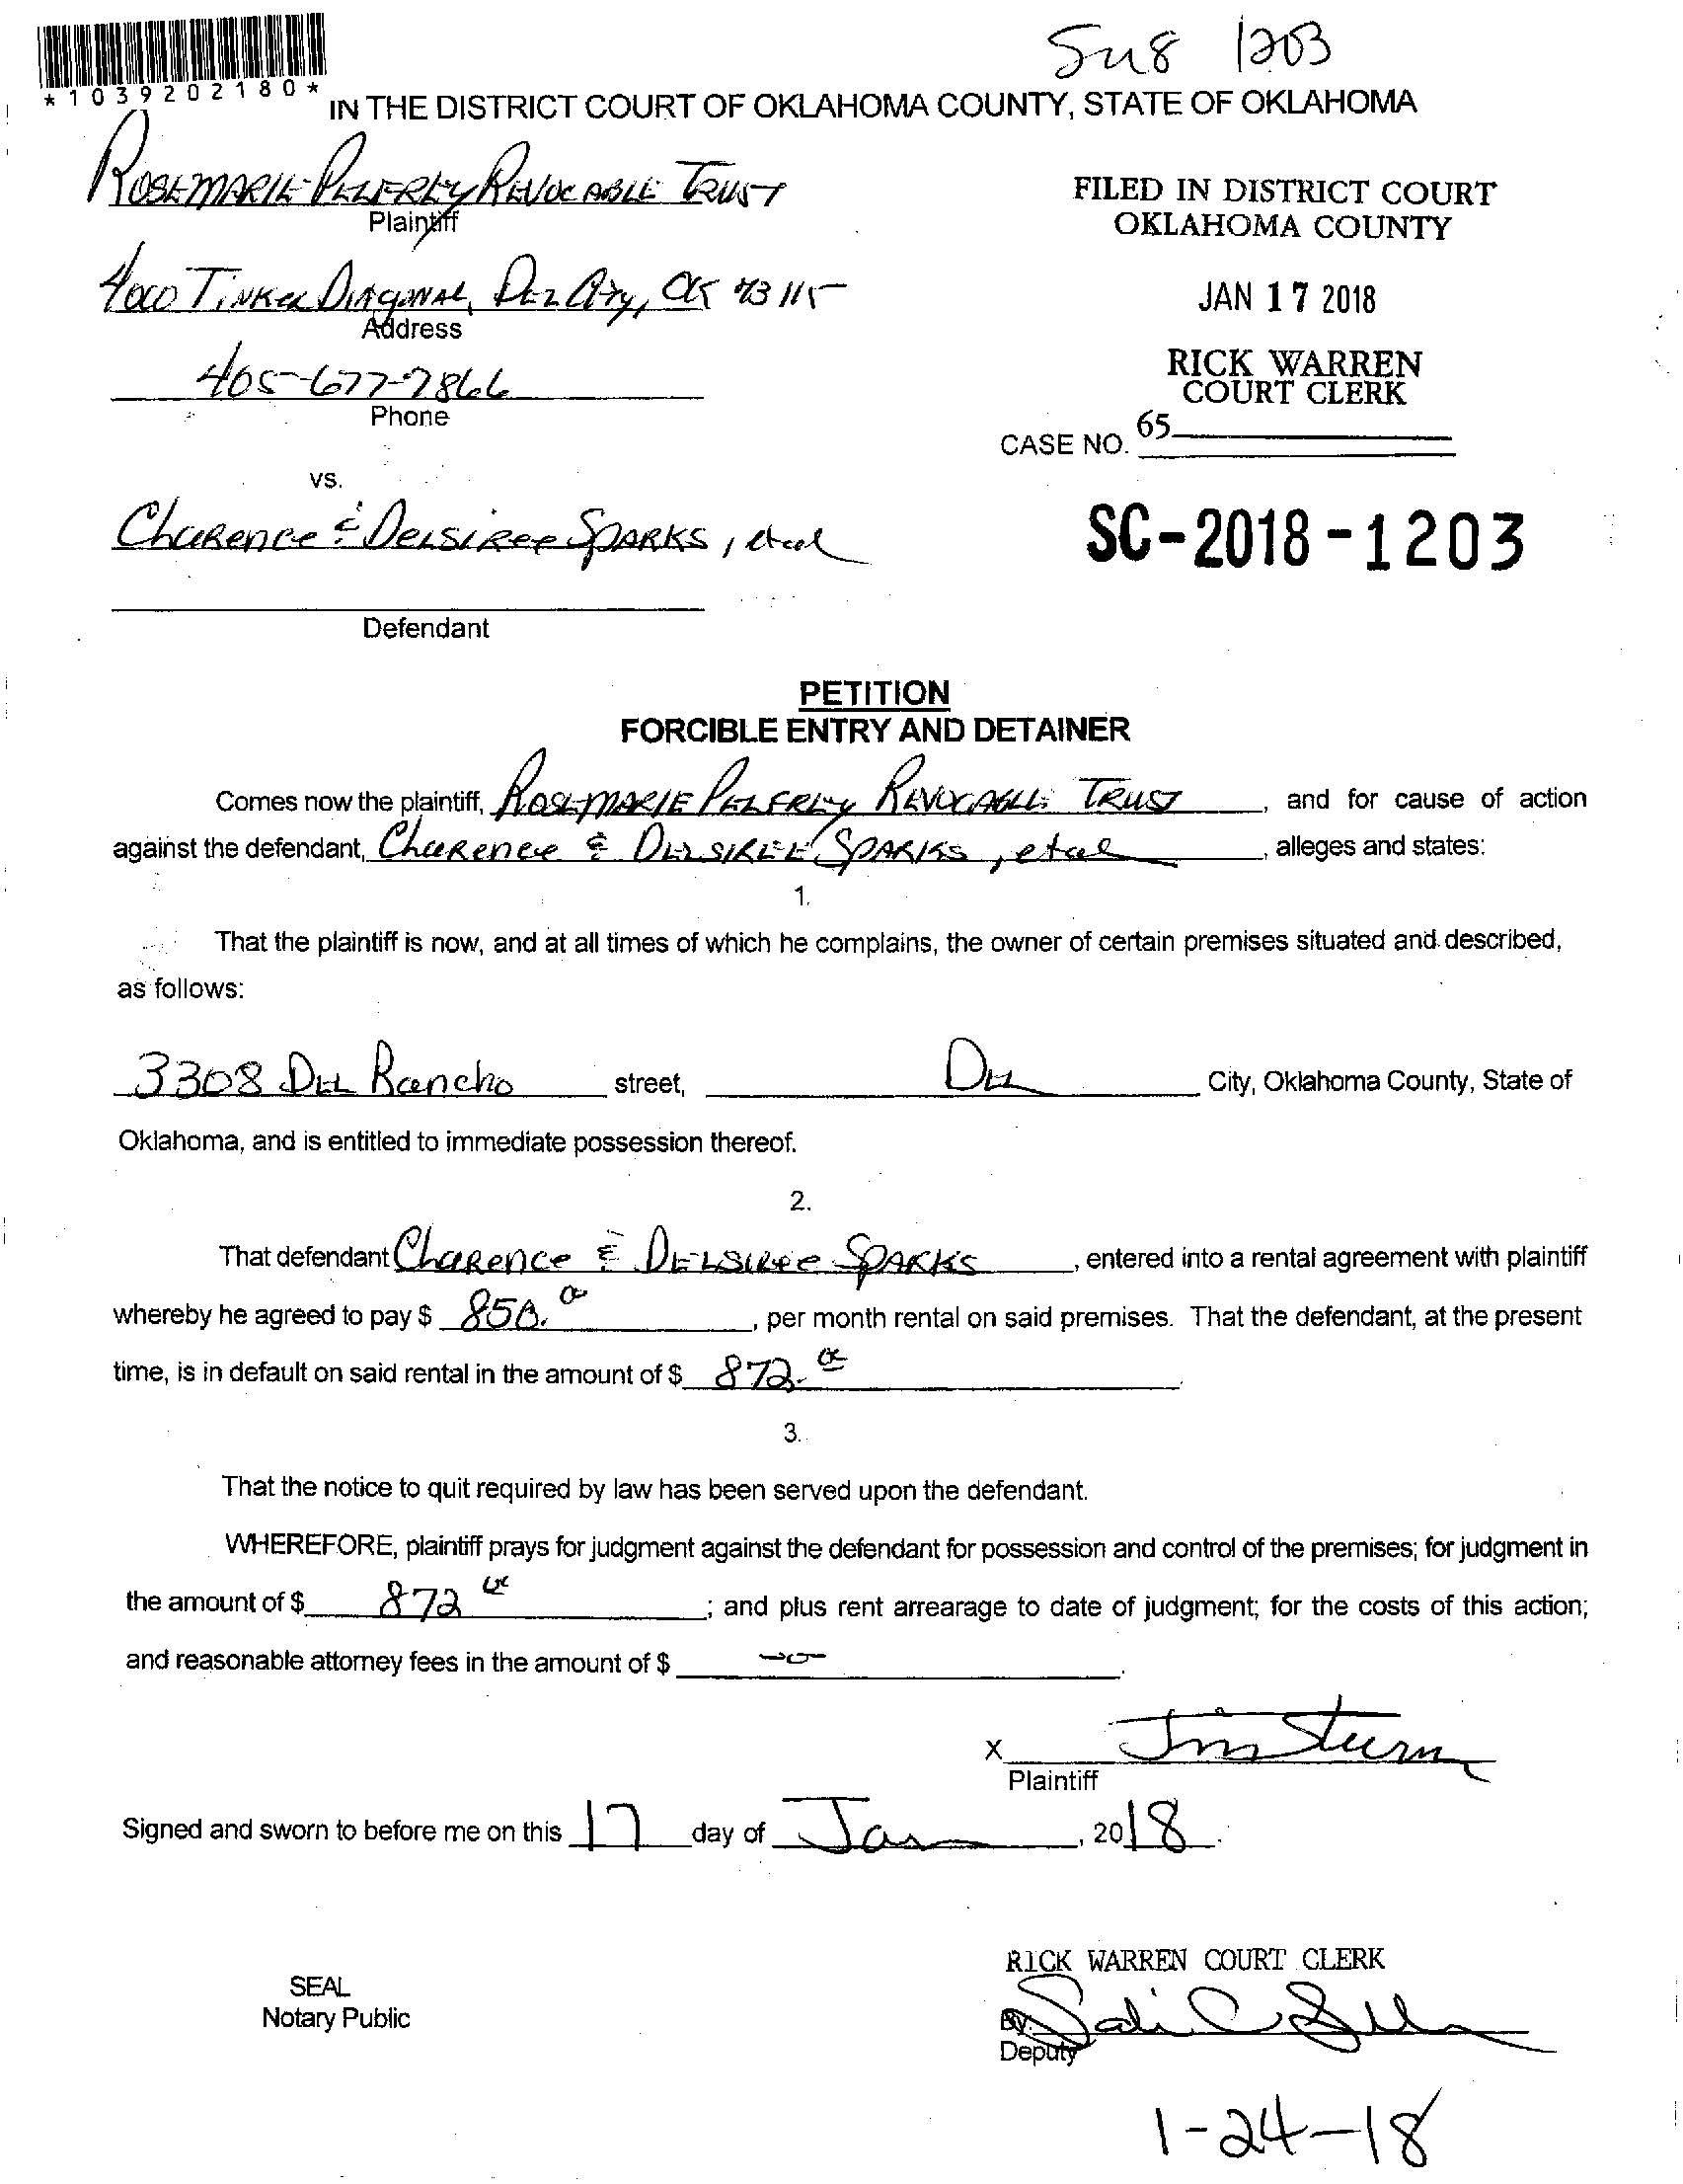 Su8 1203
*1039202180*
IN THE DISTRICT COURT OF OKLAHOMA COUNTY, STATE OF OKLAHOMA
ROSEMARIE PELFREY REVOCABLE TRUST
Plaintiff
FILED IN DISTRICT COURT
OKLAHOMA COUNTY
4000 TINKER DIAGONAL, DEL City, OK 73115
Address
JAN 17 2018
405-677-7866
Phone
RICK WARREN
COURT CLERK
CASE NO. 65
vs.
Clarence & Delsiree SPARKS, etal
SC-2018-1203
Defendant
PETITION
FORCIBLE ENTRY AND DETAINER
Comes now the plaintiff, ROSEMARIE PELFREY REVOCABLE TRUST, and for cause of action
against the defendant, Clarence & DELSIREE SPARKS, etal, alleges and states:
1.
That the plaintiff is now, and at all times of which he complains, the owner of certain premises situated and described,
as follows:
3308 DEL Rancho street, DEL City, Oklahoma County, State of
Oklahoma, and is entitled to immediate possession thereof.
2.
That defendant Clarence & DELSIREE SPARKS, entered into a rental agreement with plaintiff
whereby he agreed to pay $ 850.00, per month rental on said premises. That the defendant, at the present
time, is in default on said rental in the amount of $ 872.00.
3.
That the notice to quit required by law has been served upon the defendant.
WHEREFORE, plaintiff prays for judgment against the defendant for possession and control of the premises; for judgment in
the amount of $ 872 00; and plus rent arrearage to date of judgment; for the costs of this action;
and reasonable attorney fees in the amount of $ -0-.
X Jim Sturm
Plaintiff
Signed and sworn to before me on this 17 day of Jan, 2018.
RICK WARREN COURT CLERK
SEAL
Notary Public
By:
Deputy
1-24-18